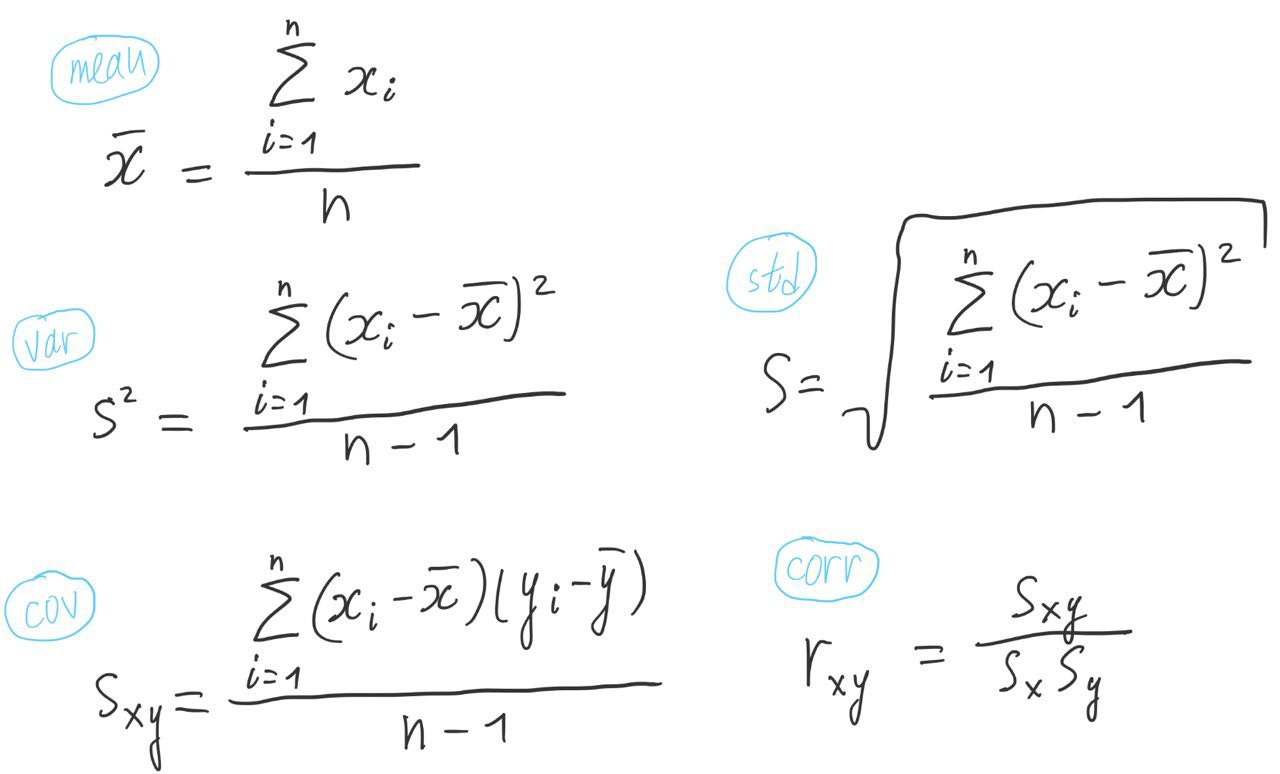 mean
x̄ = \frac{\sum_{i=1}^{n} x_i}{n}
var
s² = \frac{\sum_{i=1}^{n} (x_i - x̄)²}{n - 1}
std
S = \sqrt{\frac{\sum_{i=1}^{n} (x_i - x̄)²}{n - 1}}
cov
S_{xy} = \frac{\sum_{i=1}^{n} (x_i - x̄)(y_i - ȳ)}{n - 1}
corr
r_{xy} = \frac{S_{xy}}{S_x S_y}